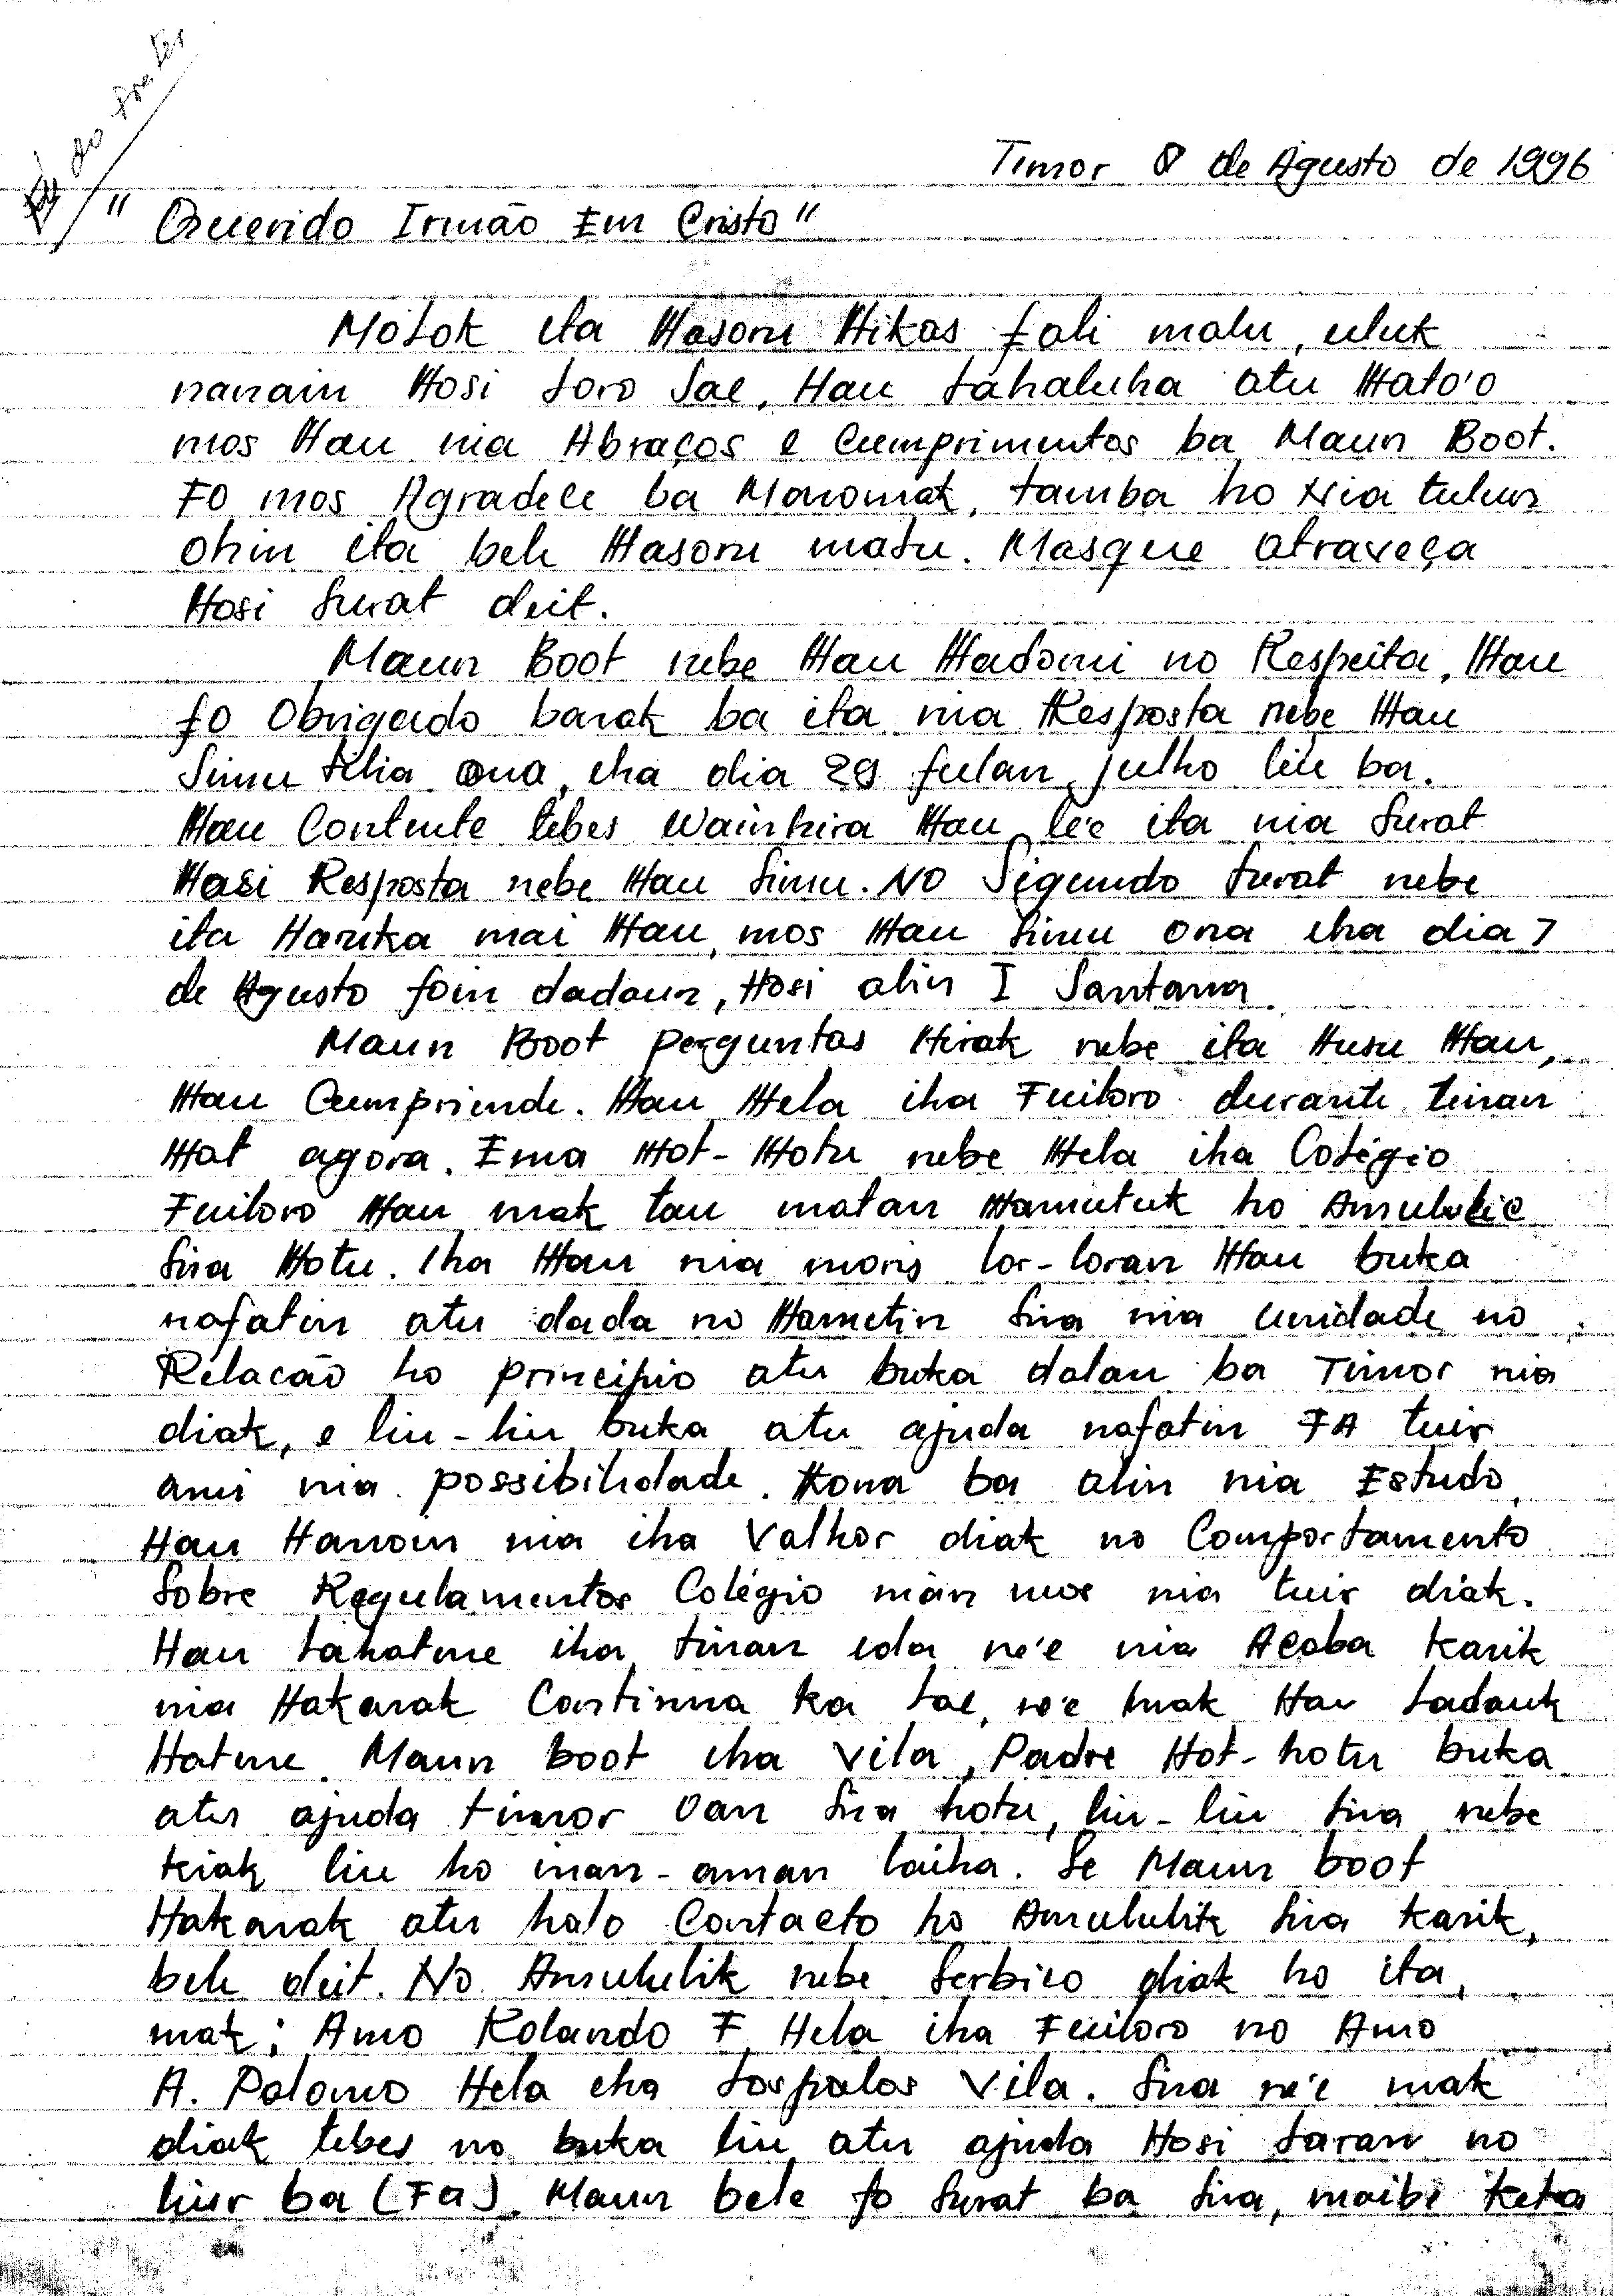 Timor 8 de Agusto de 1996
" Querido Irmão Em Cristo "
Molok ita Hasoru Hikas fali malu, uluk
nanain Hosi loro Sae, Hau lahaluha atu Hato'o
mos Hau nia Abraços e Cumprimentos ba Maun Boot.
Fo mos Agradece ba Maromak, tamba ho Nia tulun
ohin ita bele Hasoru malu. Masque atraveça
Hosi Surat deit.
Maun Boot nebe Hau Hadomi no Respeita, Hau
fo Obrigado barak ba ita nia Resposta nebe Hau
Simu tihia ona, iha dia 29 fulan julho liu ba.
Hau Contente tebes wainhira Hau le'e ita nia Surat
Hosi Resposta nebe Hau Simu. No Segundo Surat nebe
ita Haruka mai Hau, mos Hau Simu ona iha dia 7
de Agusto foin dadaun, Hosi alin I Santana.
Maun Boot perguntas Hirak nebe ita Husu Hau,
Hau Cumpriende. Hau Hela iha Fuiloro durante tinan
Hat agora. Ema Hot-Hotu nebe Hela iha Colégio
Fuiloro Hau mak tau matan Hamutuk ho Amululic
Sira Hotu. Iha Hau nia moris lor-loran Hau buka
nafatin atu dada no Hametin Sira nia unidade no
Relacão ho principio atu buka dalan ba Timor nia
diak, e liu-liu buka atu ajuda nafatin FA tuir
ami nia possibilidade. Kona ba alin nia Estudo,
Hau Hanoin nia iha Valhor diak no Comportamento
Sobre Regulamentos Colégio nian mos nia tuir diak.
Hau lahatene iha tinan ida ne'e nia Acaba karik
nia Hakarak Continua ka lae, ne'e mak Hau ladauk
Hatene. Maun boot iha Vila, Padre Hot-hotu buka
atu ajuda timor oan Sira hotu, liu-liu Sira nebe
kiak liu ho inan-aman laiha. Se Maun boot
Hakarak atu halo Contacto ho Amululik Sira karik,
bele deit. No Amululik nebe Serbico diak ho ita,
mak: Amo Rolando F Hela iha Fuiloro no Amo
A. Palomo Hela iha Lospalos Vila. Sira ne'e mak
diak tebes no buka liu atu ajuda Hosi laran no
liur ba (Fa). Maun bele fo Surat ba Sira, maibe keta